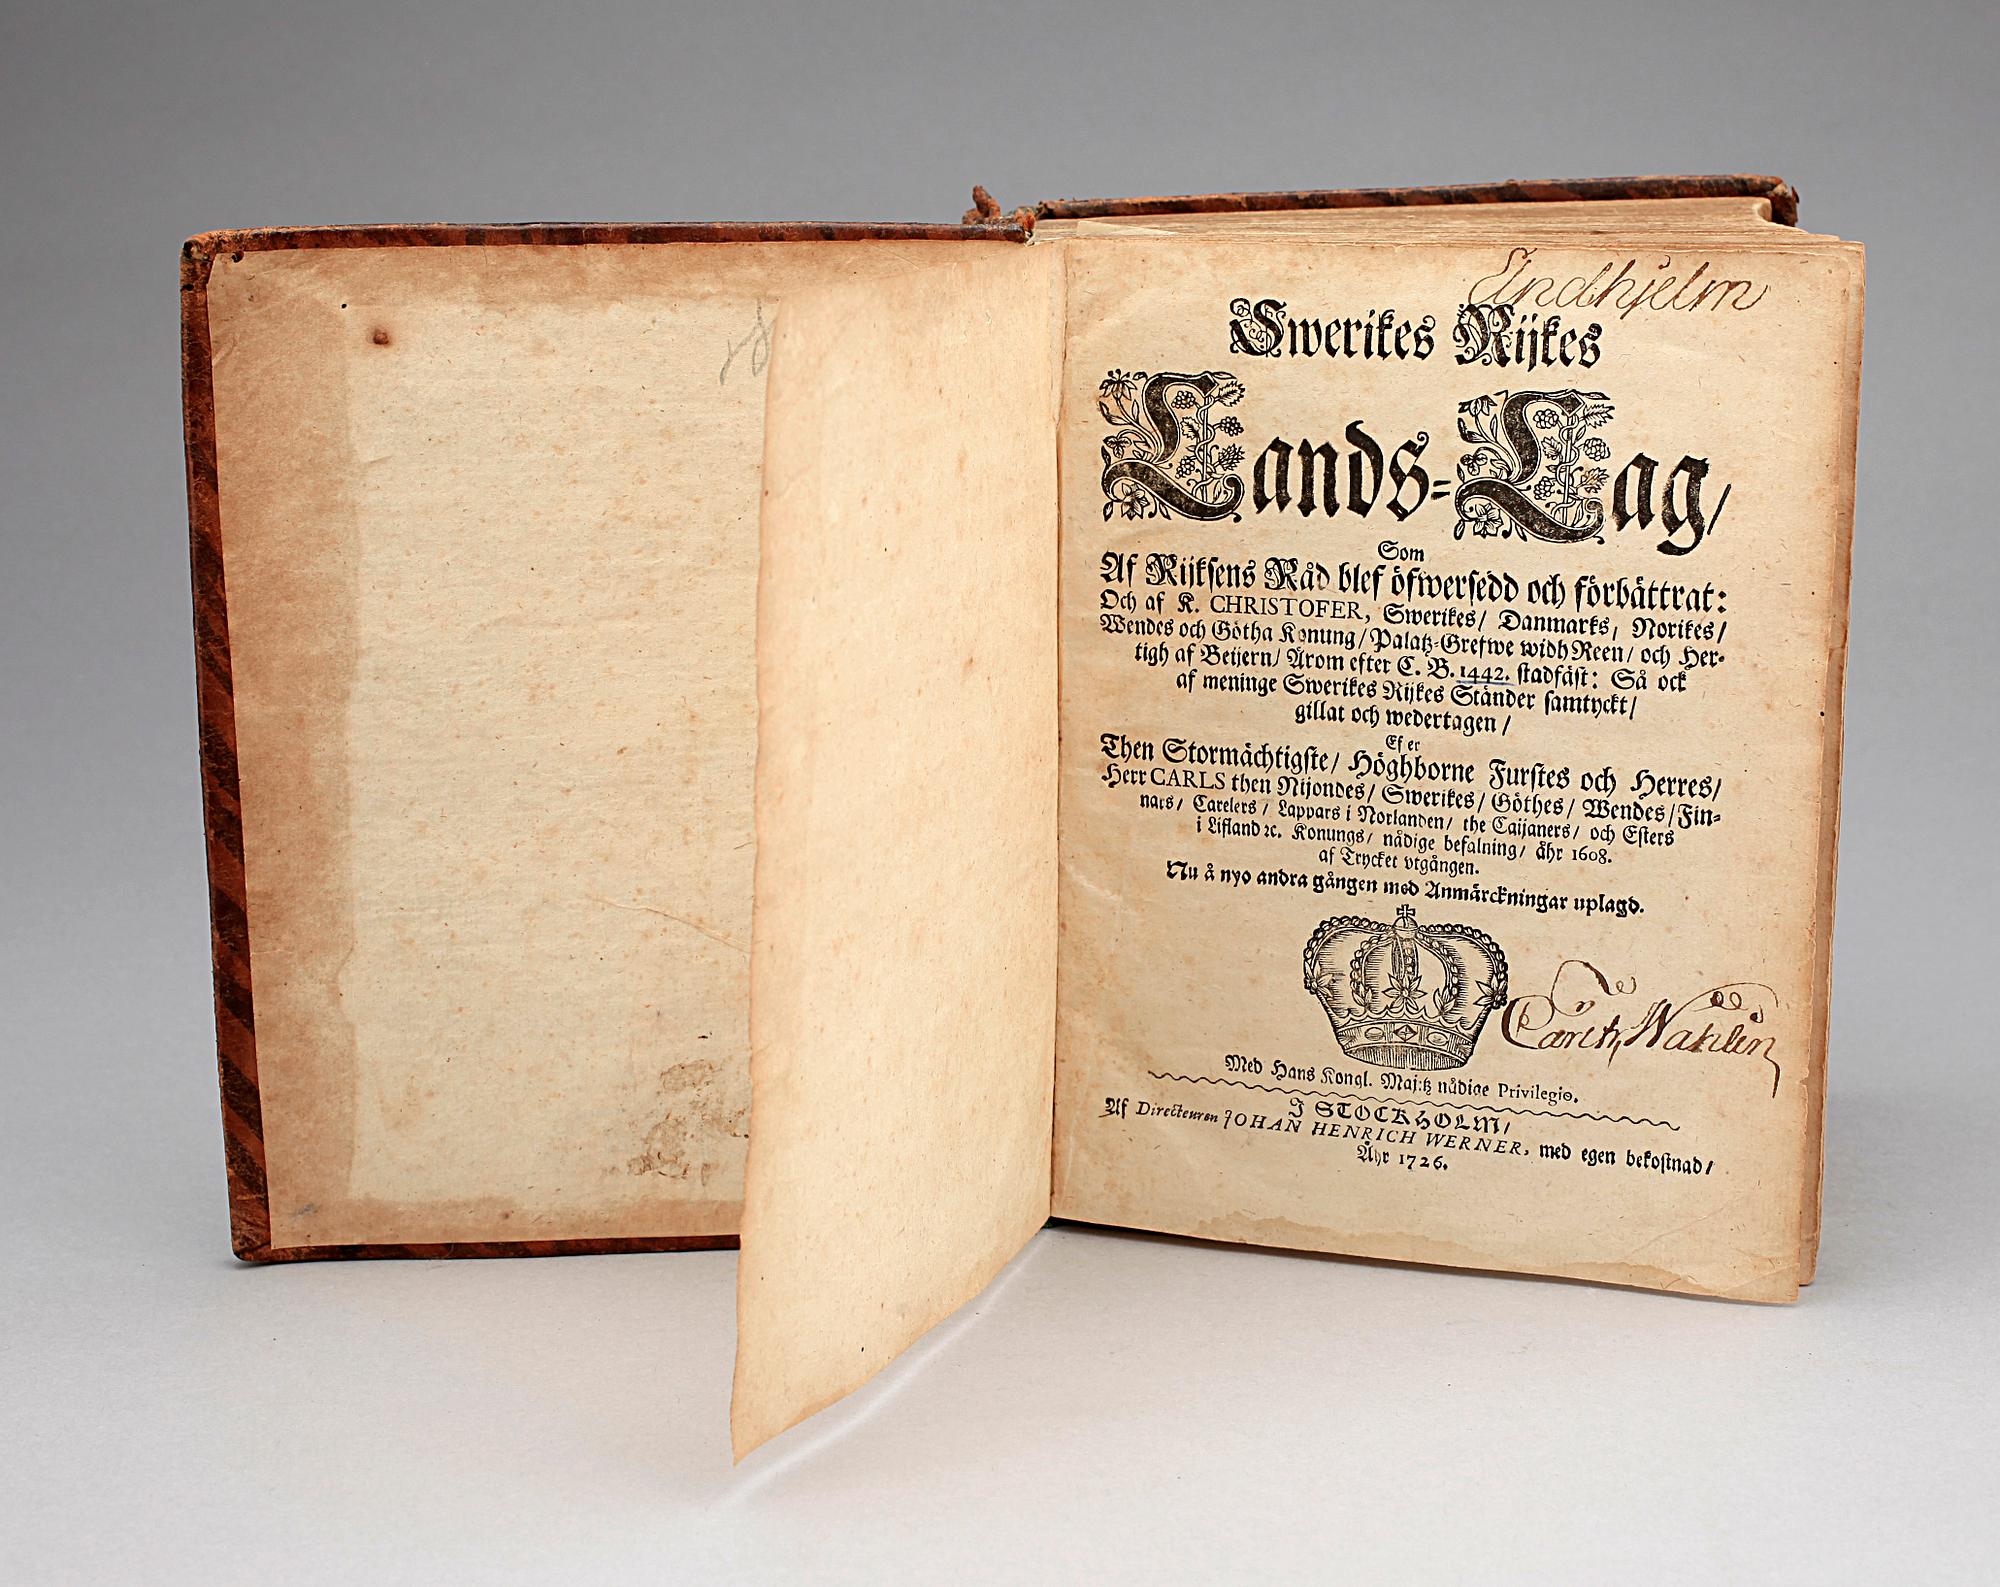 Lindhjelm
Swerikes Rijkes
Lands-Lag/
Som
Af Rijksens Råd blef öfwersedd och förbättrat:
Och af K. CHRISTOFER, Swerikes/ Danmarks, Norikes/
Wendes och Götha Konung/ Palatz-Grefwe widh Reen/ och Her-
tigh af Beijern/ Årom efter C. B. 1442. stadfäst: Så ock
af meninge Swerikes Rijkes Ständer samtyckt/
gillat och wedertagen/
Ef er
Then Stormächtigste/ Höghborne Furstes och Herres/
Herr CARLS then Nijondes/ Swerikes/ Göthes/ Wendes/ Fin-
nars/ Carelers/ Lappars i Norlanden/ the Caijaners/ och Esters
i Lifland ꝛc. Konungs/ nådige befalning/ åhr 1608.
af Trycket vtgången.
Nu å nyo andra gången med Anmärckningar uplagd.
Wahlin
Med Hans Kongl. Maj:tz nådige Privilegio.
J STOCKHOLM/
Af Directeuren JOHAN HENRICH WERNER, med egen bekostnad/
Åhr 1726.